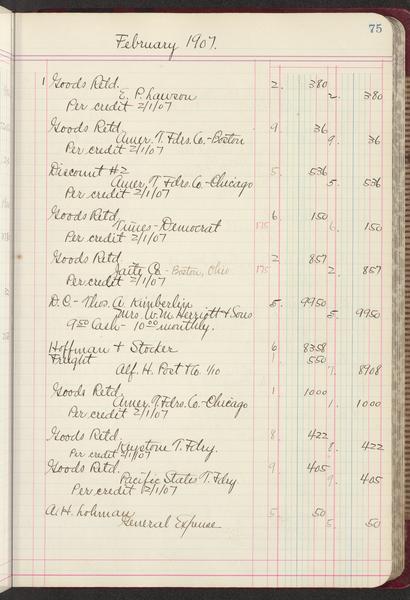 75
February 1907.
1 Goods Retd. 2. 380
E. P. Lawson 2. 380
Per credit 2/1/07
Goods Retd. 9. 36
Amer. T. Fdrs. Co.-Boston 9. 36
Per credit 2/1/07
Discount #2 5. 536
Amer. T. Fdrs. Co.-Chicago 5. 536
Per credit 2/1/07
Goods Retd 6. 150
Times-Democrat 175 6. 150
Per credit 2/1/07
Goods Retd 2 857
Co. - Boston, Ohio 175 2. 857
Per credit 2/1/07
D.C.- Thos. A. Kimberlin 5. 9950
Mrs. W. M. Herriott & Sons 5. 9950
9.50 Cash- 10.00 monthly.
Hoffman & Stocker 6 8358
Freight 1 550
Alf. H. Post & Co. 1/10 7. 8908
Goods Retd. 1 1000
Amer. T. Fdrs. Co.-Chicago 1. 1000
Per credit 2/1/07
Goods Retd. 8. 422
Keystone T. Fdry. 8. 422
Per credit 2/1/07
Goods Retd. 9 405
Pacific States T. Fdry. 9. 405
Per credit 2/1/07
A. H. Lohman 5. 50
General Expense 5. 50